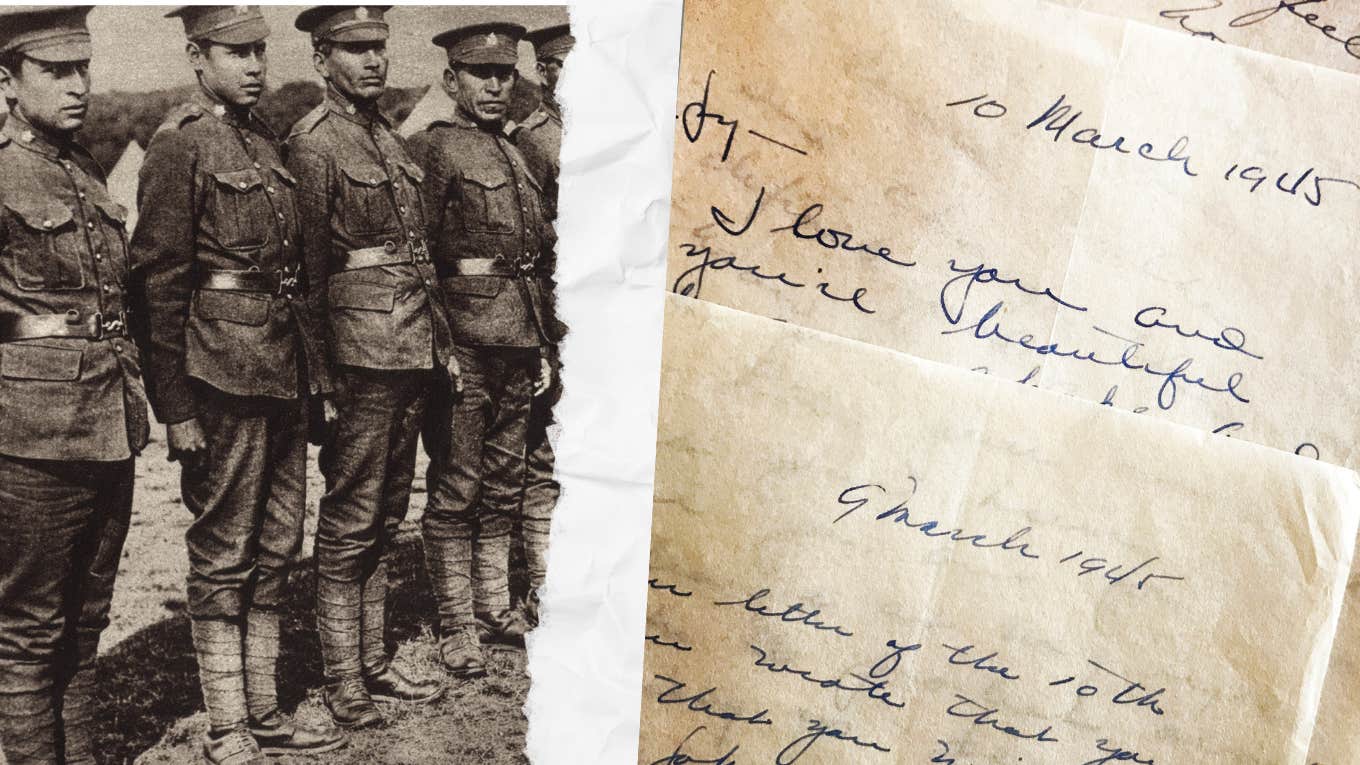 feel
10 March 1945
I love you and
you're beautiful
9 March 1945
letter of the 10th
wrote that you
that you